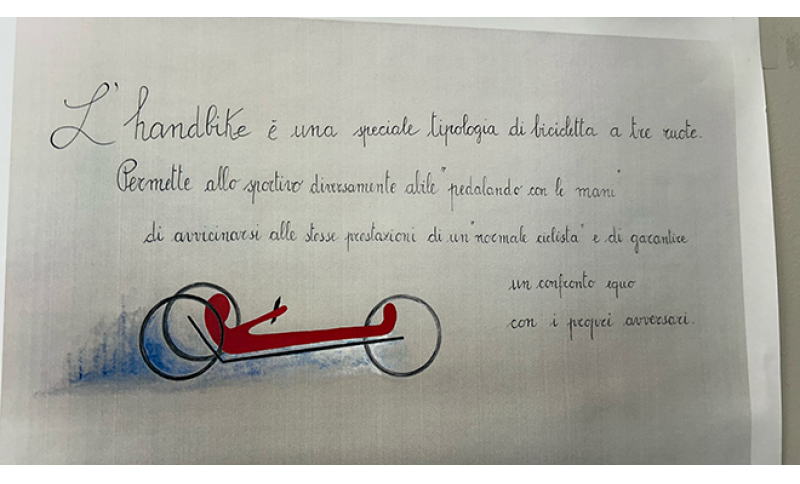 L'handbike è una speciale tipologia di bicicletta a tre ruote.
Permette allo sportivo diversamente abile "pedalando con le mani"
di avvicinarsi alle stesse prestazioni di un "normale ciclista" e di garantire
un confronto equo
con i propri avversari.